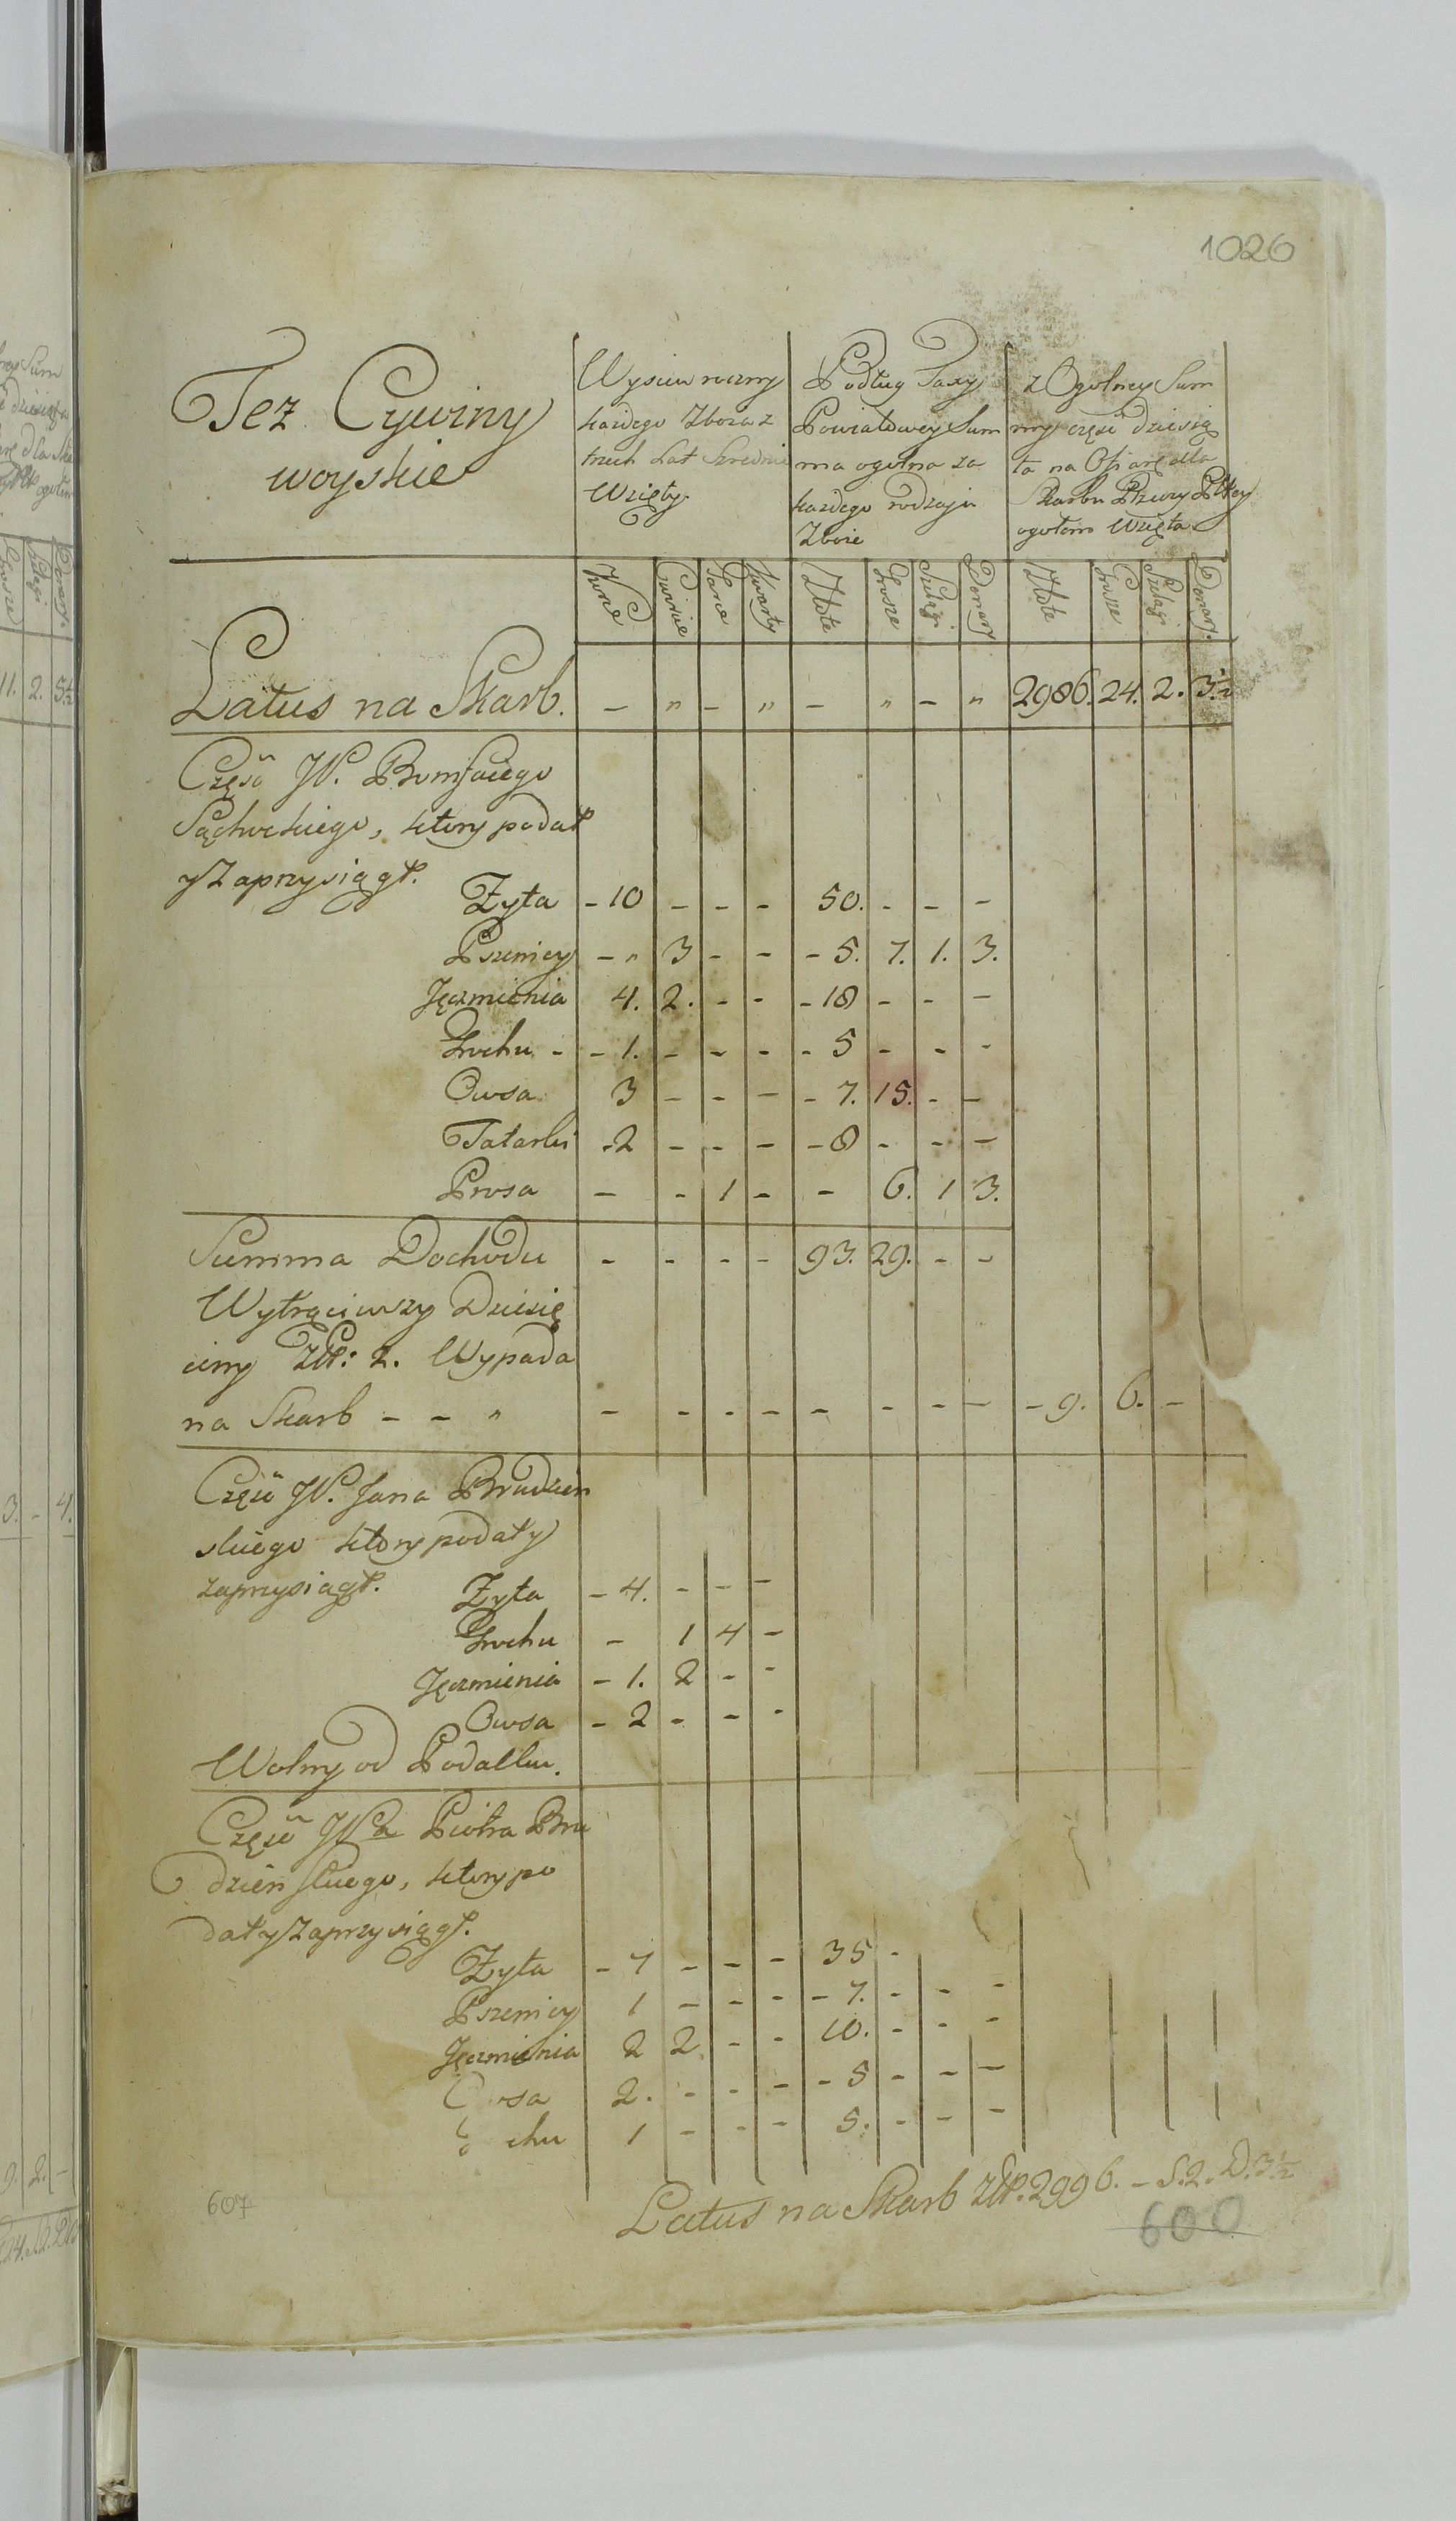 1026
Też Cywiny
woyskie
Wysiew roczny
każdego Zboża z
trzech Lat Srednio
Wzięty
Podług Taxy
Powiatowey Sum
ma ogolna za
każdego rodzaju
Zboże
z Ogolney Sum
my części dziesią
ta na Ofiarę dla
Skarbu Rzeczy Pltey
ogołem Wzięta
Złote Grosze Szelągi Denary Złote Grosze Szelągi Denary
Latus na Skarb. — „ — „ — „ — „ 2986. 24. 2. 3½
Częsć JP. Bonifacego
który podał
y Zaprzysiągł.
Żyta - 10 - - - 50. - - -
Pszenicy - „ 3 - - - 5. 7. 1. 3.
Jęczmienia 4. 2. - - - 18 - - -
Grochu - - 1. - - - - 5 - - -
Owsa 3 - - - - 7. 15. - -
Tatarki - 2 - - - - 8 - - -
Prosa - - 1 - - 6. 1 3.
Summa Dochodu - - - - 93. 29. - -
Wytrąciwszy Dziesię
ciny Złł: 2. Wypada
na Skarb - - „ - - - - - - - - - 9. 6. -
Częsć JP. Jana Brudzień
skiego który podał y
zaprzysiągł.
Żyta - 4. - - -
Grochu - 1 4 -
Jęczmienia - 1. 2 - -
Owsa - 2 - - -
Wolny od Podatku.
Częsć Piotra Bru
dzieńskiego, który po
dał y Zaprzysiągł.
Żyta - 7 - - - 35 -
Pszenicy 1 - - - - 7. - - -
Jęczmienia 2 2 - - 10. - - -
Owsa 2. - - - - 5 - - -
chu 1 - - - 5. - - -
Latus na Skarb Złł. 2996. - S. 2. D. 3½
607
600